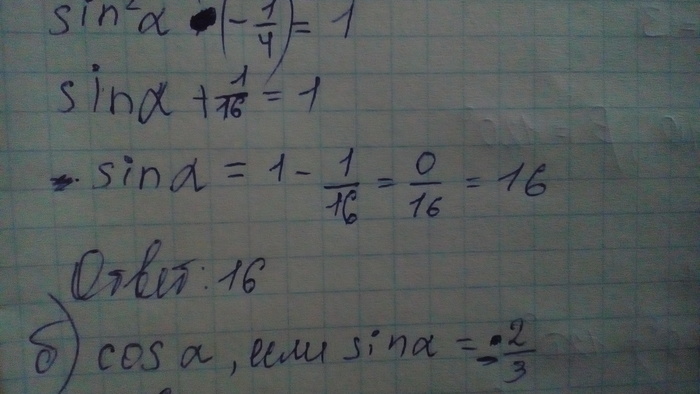 sin²α (-1/4) = 1
sinα + 1/16 = 1
sinα = 1 - 1/16 = 0/16 = 16
Ответ: 16
б) cosα, если sinα = -2/3